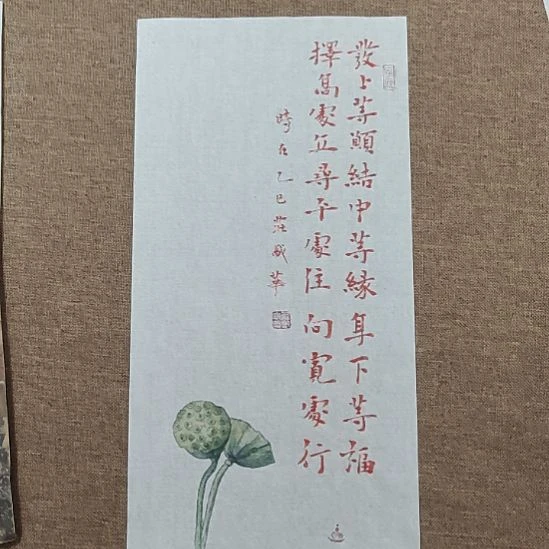 發上等願結中等緣享下等福
擇高處立尋平處住向寬處行
時在乙巳莊威華